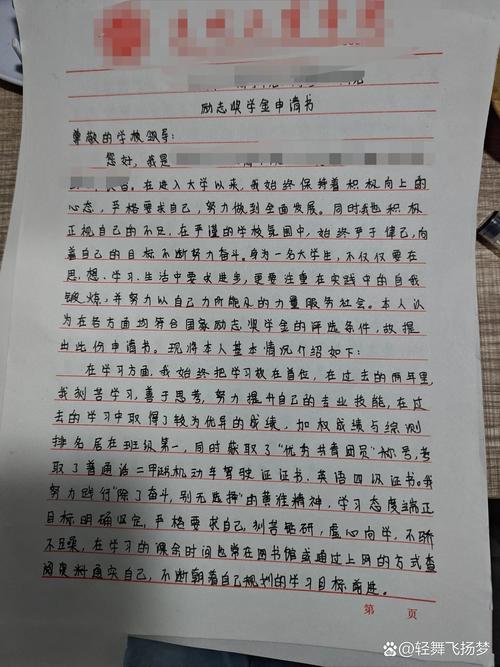 励志奖学金申请书
尊敬的学校领导：
您好，我是
在进入大学以来，我始终保持着积极向上的
心态，严格要求自己，努力做到全面发展。同时我也积极
正视自己的不足，在严谨的学校氛围中，始终严于律己，向
着自己的目标不断努力奋斗。身为一名大学生，不仅仅要在
思想、学习、生活中要求进步，更要注重在实践中的自我
锻炼，并努力以自己力所能及的力量服务社会。本人认
为在各方面均符合国家励志奖学金的评选条件，故提
出此份申请书。现将本人基本情况介绍如下：
在学习方面，我始终把学习放在首位，在过去的两年里，
我刻苦学习，善于思考，努力提升自己的专业技能，在过
去的学习中取得了较为优异的成绩，加权成绩与综测
排名居在班级第一，同时获取了"优秀共青团员"称号，考
取了普通话二甲、机动车驾驶证证书、英语四级证书。我
努力践行"除了奋斗，别无选择"的黄淮精神，学习态度端正
目标明确坚定，严格要求自己，刻苦钻研，虚心向学，不骄
不躁，在学习的课余时间也常在图书馆或通过上网的方式查
阅资料充实自己，不断朝着自己规划的学习目标前进。
第 页
@轻舞飞扬梦